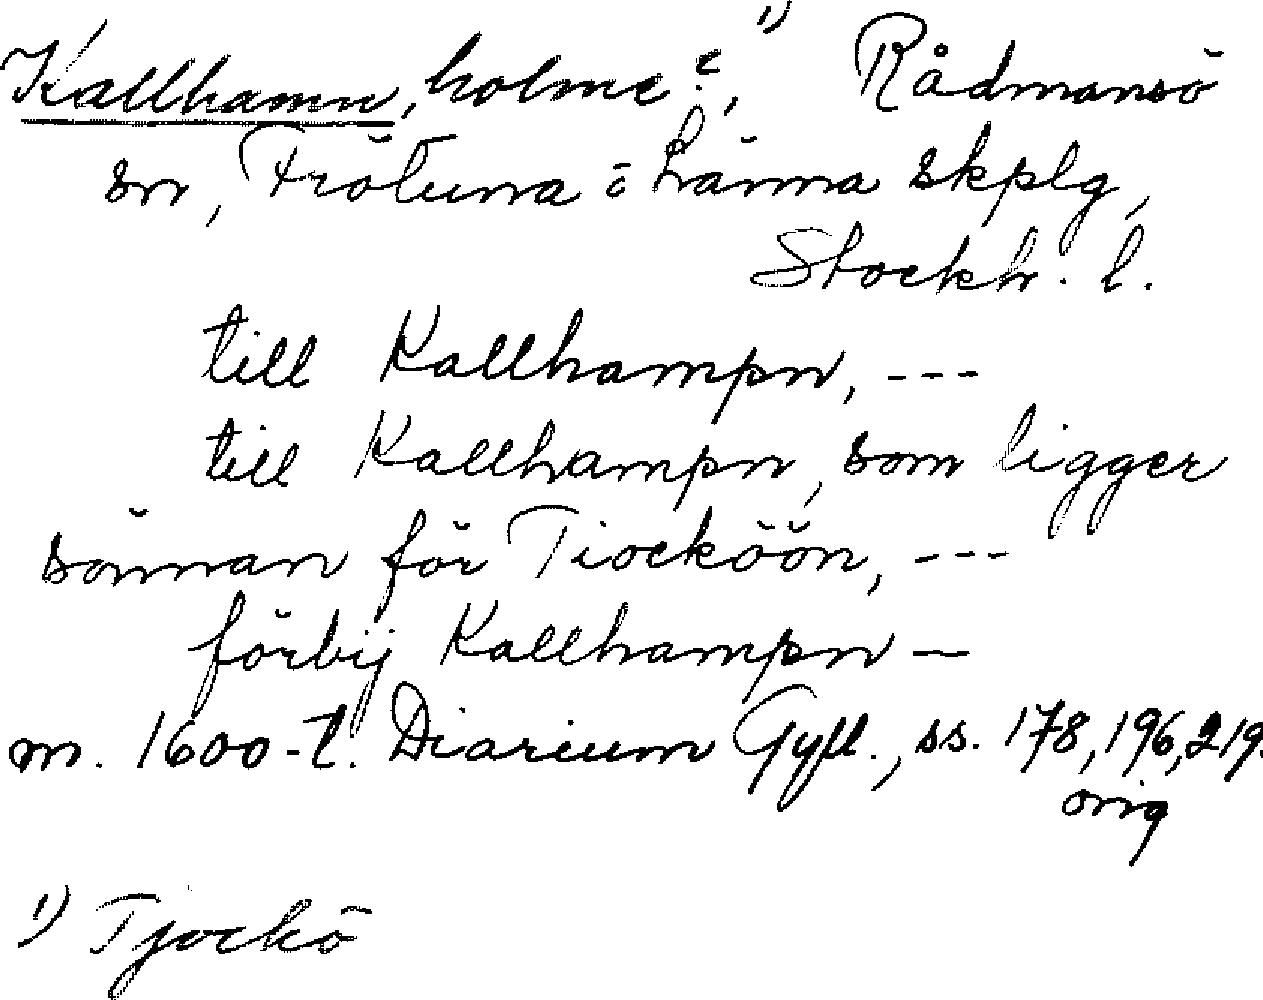 Kallhamn, holme?, ¹) Rådmansö
sn, Frötuna o Länna skplg,
Stockh. l.
till Kallhampn, ---
till Kallhampn, som ligger
sönnan för Tiocköön, ---
förbij Kallhampn —
m. 1600-t. Diarium Gyll., ss. 178, 196, 219.
orig
¹) Tjockö